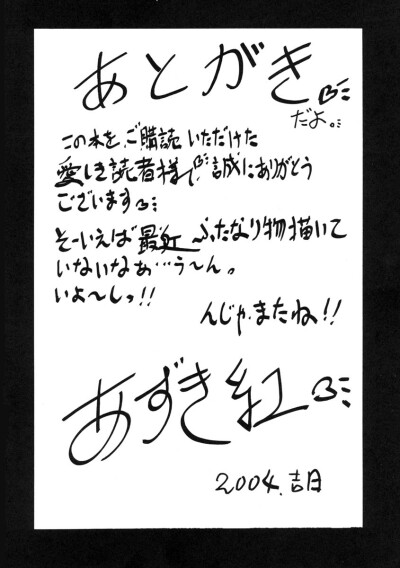 あとがき
だよ。
この本を、ご購読いただけた
愛しき読者様、誠にありがとう
ございます
そーいえば最近ふたなり物描いて
いないなぁ…う〜ん。
いよ〜しっ!!
んじゃ、またね!!
あずき紅
2004.吉日